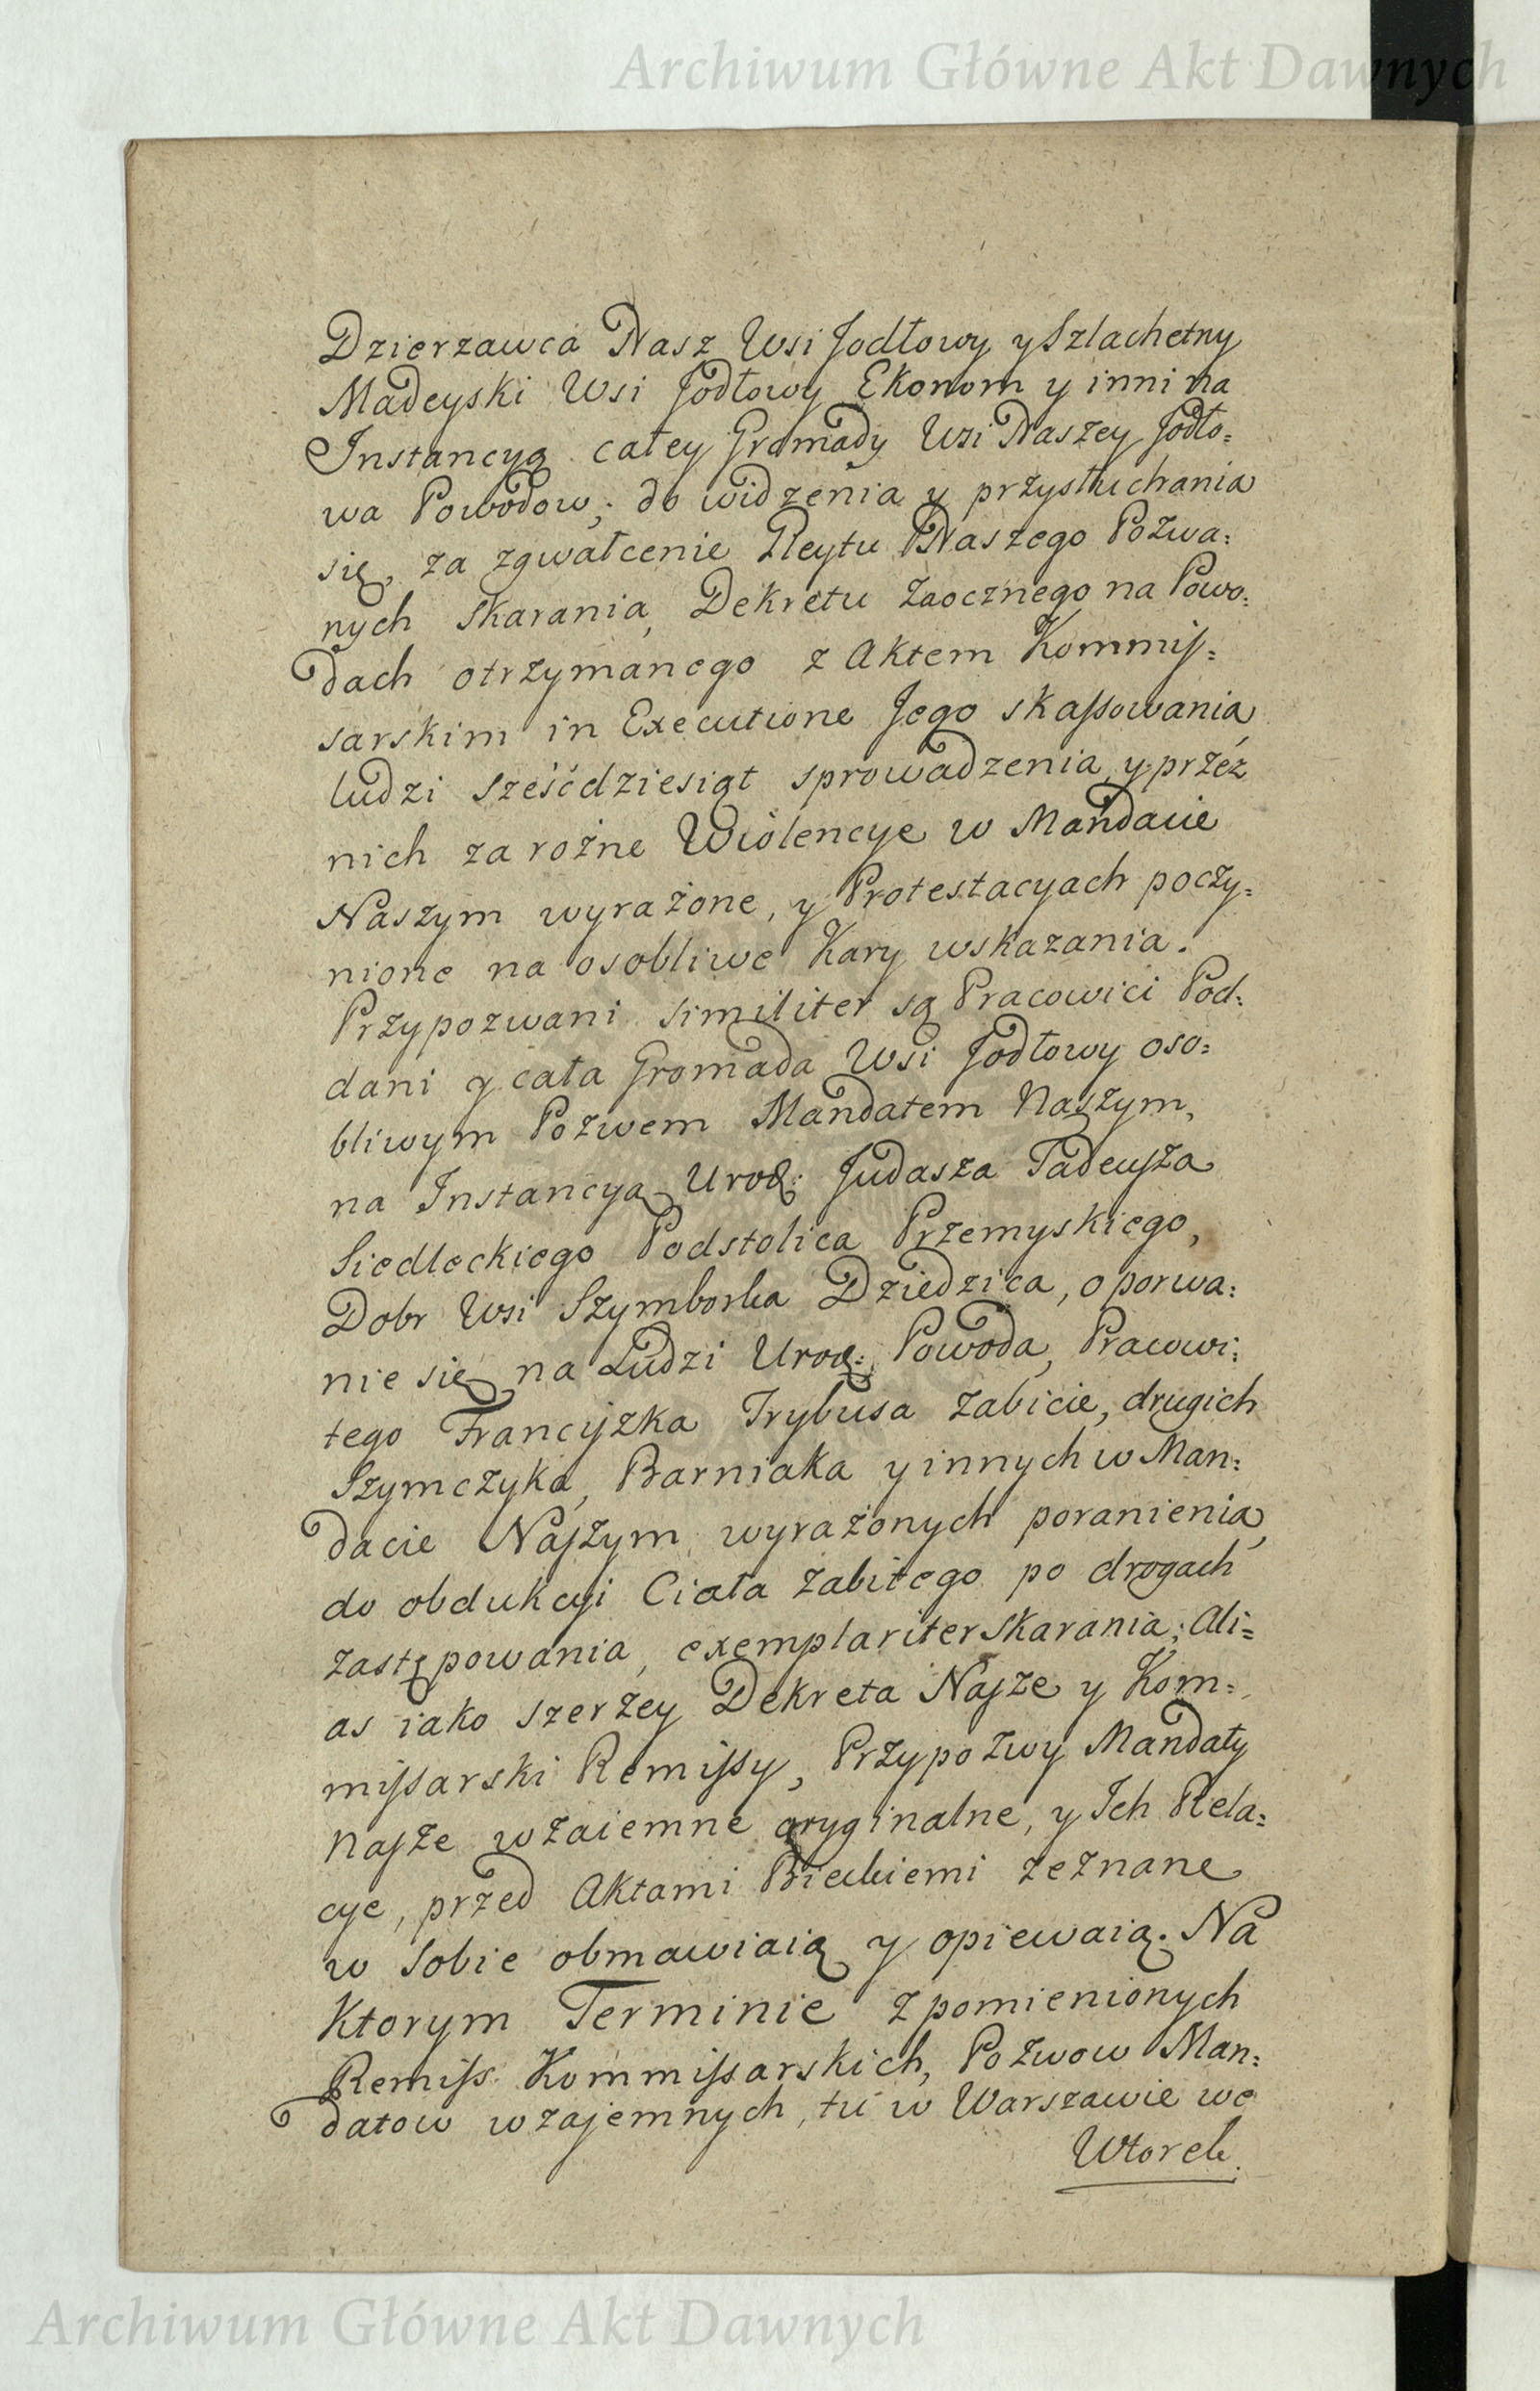 Archiwum Główne Akt Dawnych
Dzierzawca Nasz Wsi Jodłowy y Szlachetny
Madeyski Wsi Jodłowy Ekonom y inni na
Instancyą całey Gromady Wsi Naszey Jodło=
wa Powodow, do widzenia y przysłuchania
się, za zgwałcenie Reytu Naszego Pozwa=
nych skarania, Dekretu Zaocznego na Powo=
dach otrzymanego z Aktem Kommis=
sarskim in Executione Jego skassowania,
ludzi sześćdziesiąt sprowadzenia, y przéz
nich za rożne Wiolencye w Mandacie
Naszym wyrażone, y Protestacyach poczy=
nione na osobliwe Kary wskazania.
Przypozwani similiter są Pracowici Pod=
dani y cała Gromada Wsi Jodłowy oso=
bliwym Pozwem Mandatem Naszym,
na Instancyą Urodz: Judasza Tadeusza
Siedleckiego Podstolica Przemyskiego,
Dobr Wsi Szymborka Dziedzica, o porwa=
nie się na Ludzi Urodz: Powoda, Pracowi=
tego Franciszka Trybusa zabicie, drugich
Szymczyka, Barniaka y innych w Man=
dacie Naszym wyrażonych poranienia,
do obdukcyi Ciała zabitego po drogach
zastępowania, exemplariter skarania; Ali=
as iako szerzey Dekreta Nasze y Kom=
missarski Remissy, Przypozwy Mandaty
Nasze wzaiemne oryginalne, y Ich Rela=
cye, przed Aktami Bieckiemi zeznane
w sobie obmawiaią y opiewaią. Na
Ktorym Terminie z pomienionych
Remiss Kommissarskich, Pozwow Man=
datow wzajemnych, tu w Warszawie we
Wtorek.
Archiwum Główne Akt Dawnych